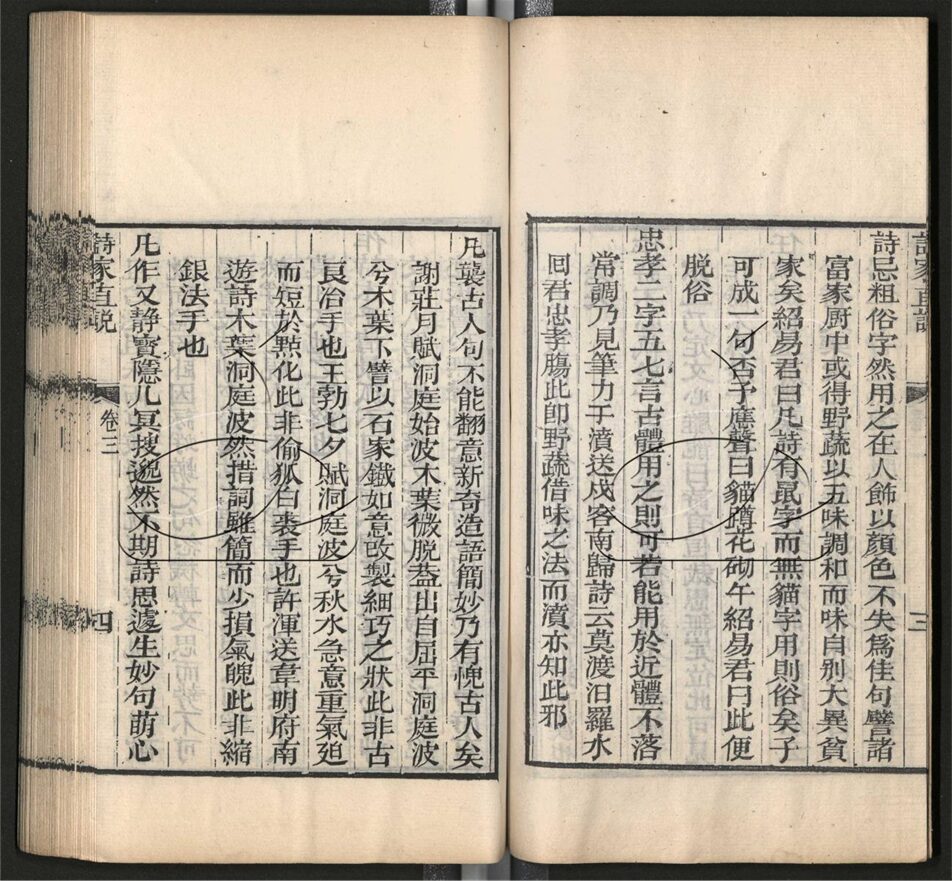 詩家直說
三
詩忌粗俗字然用之在人飾以顏色不失爲佳句譬諸
富家厨中或得野蔬以五味調和而味自别大異貧
家矣紹易君曰凡詩有鼠字而無貓字用則俗矣子
可成一句否予應聲曰貓蹲花砌午紹易君曰此便
脱俗
忠孝二字五七言古體用之則可若能用於近體不落
常調乃見筆力于濆送戍客南歸詩云莫渡汨羅水
回君忠孝膓此卽野蔬借味之法而濆亦知此邪
凡襲古人句不能翻意新奇造語簡妙乃有愧古人矣
謝莊月賦洞庭始波木葉微脱葢出自屈平洞庭波
兮木葉下譬以石家鐵如意改製細巧之狀此非古
良冶手也王勃七夕賦洞庭波兮秋水急意重氣廹
而短於㸃化此非偷狐白裘手也許渾送韋明府南
遊詩木葉洞庭波然措詞雖簡而少損氣魄此非縮
銀法手也
凡作文静室隱几冥搜邈然不期詩思遽生妙句萌心
詩家直説
卷三
四